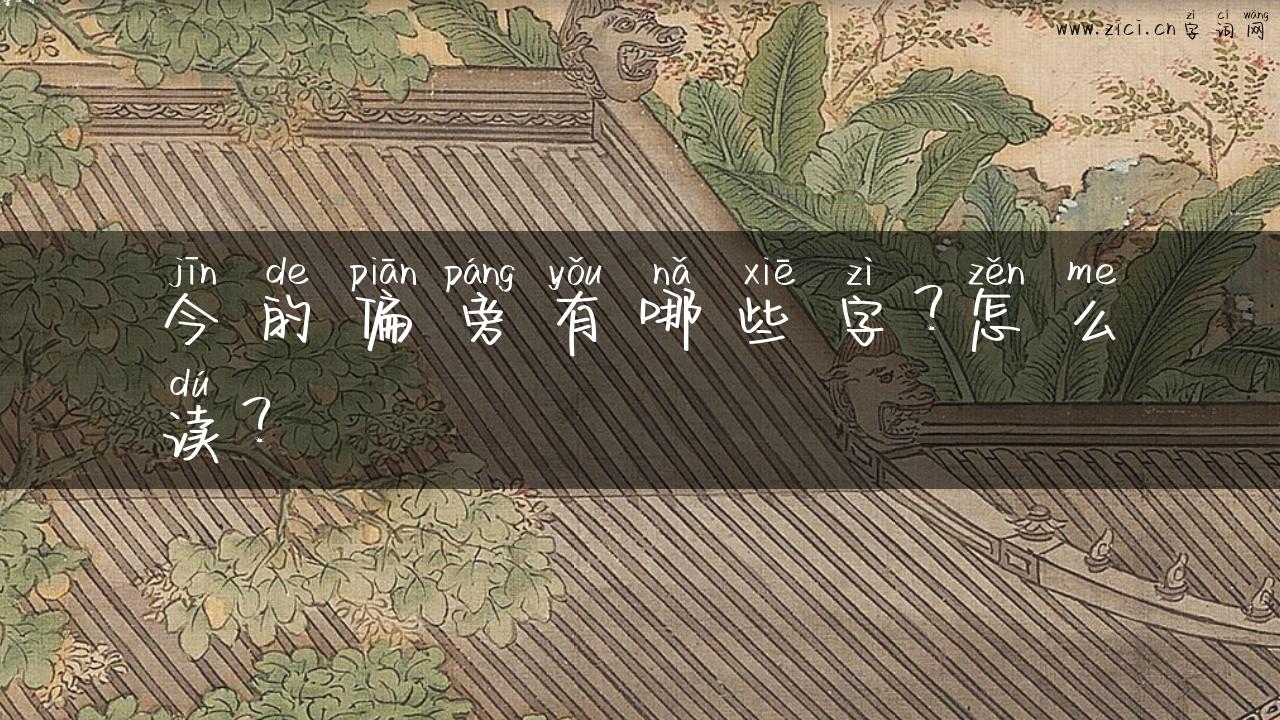 zì cí wǎng
www.zici.cn 字词网
jīn de piān páng yǒu nǎ xiē zì zěn me
今的偏旁有哪些字？怎么
dú
读？